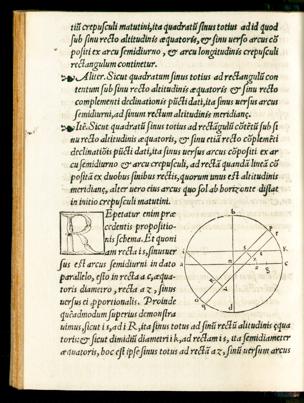 tiũ crepusculi matutini, ita quadratũ sinus totius ad id quod
sub sinu recto altitudinis æquatoris, & sinu verso arcus cõ
positi ex arcu semidiurno, & arcu longitudinis crepusculi
rectangulum continetur.
Aliter. Sicut quadratum sinus totius ad rectangulũ con
tentum sub sinu recto altitudinis æquatoris & sinu recto
complementi declinationis pũcti dati, ita sinus versus arcus
semidiurni, ad sinum rectum altitudinis meridianę.
Itẽ. Sicut quadratũ sinus totius ad rectãgulũ cõtẽtũ sub si
nu recto altitudinis æquatoris, & sinu etiã recto cõplemẽti
declinatiõis pũcti dati, ita sinus versus arcus cõpositi ex ar
cu semidiurno & arcu crepusculi, ad rectã quandã lineã cõ
positã ex duobus sinibus rectis, quorum unus est altitudinis
meridianę, alter vero eius arcus quo sol ab horizonte distat
in initio crepusculi matutini.
REpetatur enim præ
cedentis propositio-
nis schema. Et quoni
am recta i s, sinus ver
sus est arcus semidiurni in dato
parallelo, esto in recta a c, æqua-
toris diametro, recta a z, sinus
versus ei proportionalis. Proinde
quẽadmodum superius demonstra
uimus, sicut i s, ad i R, ita sinus totus ad sinũ rectũ altitudinis ęqua
toris: & sicut dimidiũ diametri i k, ad rectam i s, ita semidiameter
æquatoris, hoc est ipse sinus totus ad rectã a z, sinũ versum arcus